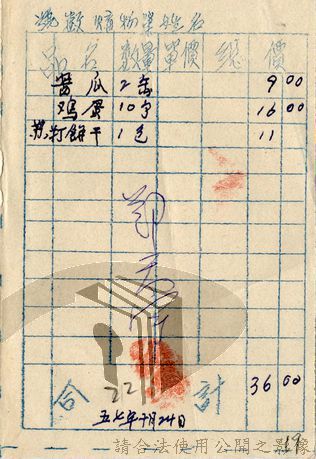 品名 數量 單價 總價
醬瓜 2 缶 9 00
鸡蛋 10 个 16 00
蘇打餅干 1 包 11
合 22 計 36 00
五七年十月24日
19
請合法使用公開之影像